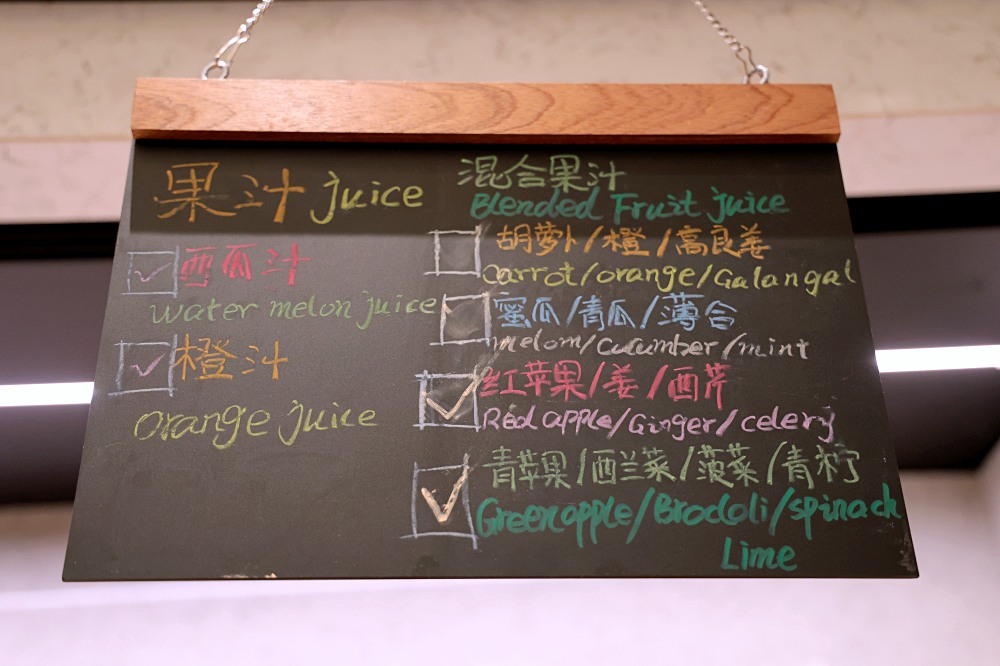 果汁 juice
西瓜汁
water melon juice
橙汁
orange juice
混合果汁
Blended Fruit juice
胡萝卜/橙/高良姜
carrot/orange/Galangal
蜜瓜/青瓜/薄合
melom/cucumber/mint
红苹果/姜/西芹
Red apple/Ginger/celery
青苹果/西兰菜/菠菜/青柠
Green apple/Brocloli/spinach
Lime